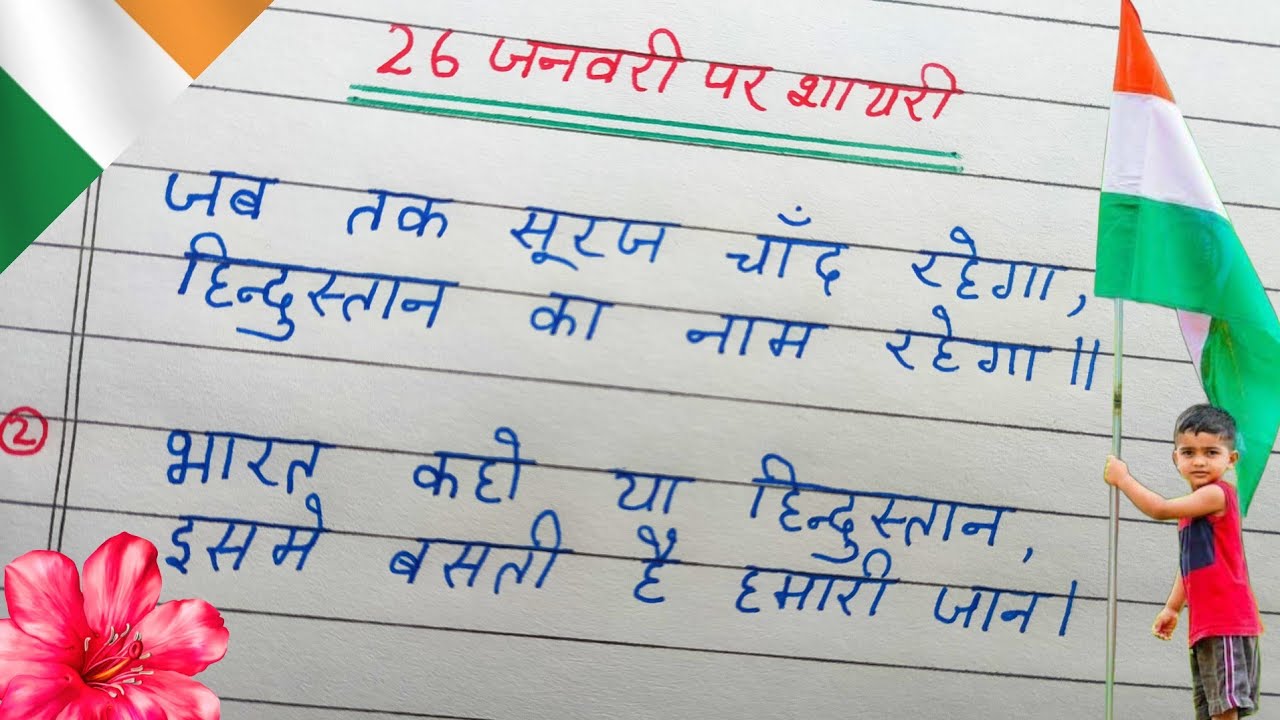 26 जनवरी पर शायरी
जब तक सूरज चाँद रहेगा,
हिन्दुस्तान का नाम रहेगा॥
② भारत कहो या हिन्दुस्तान,
इसमे बसती है हमारी जान।